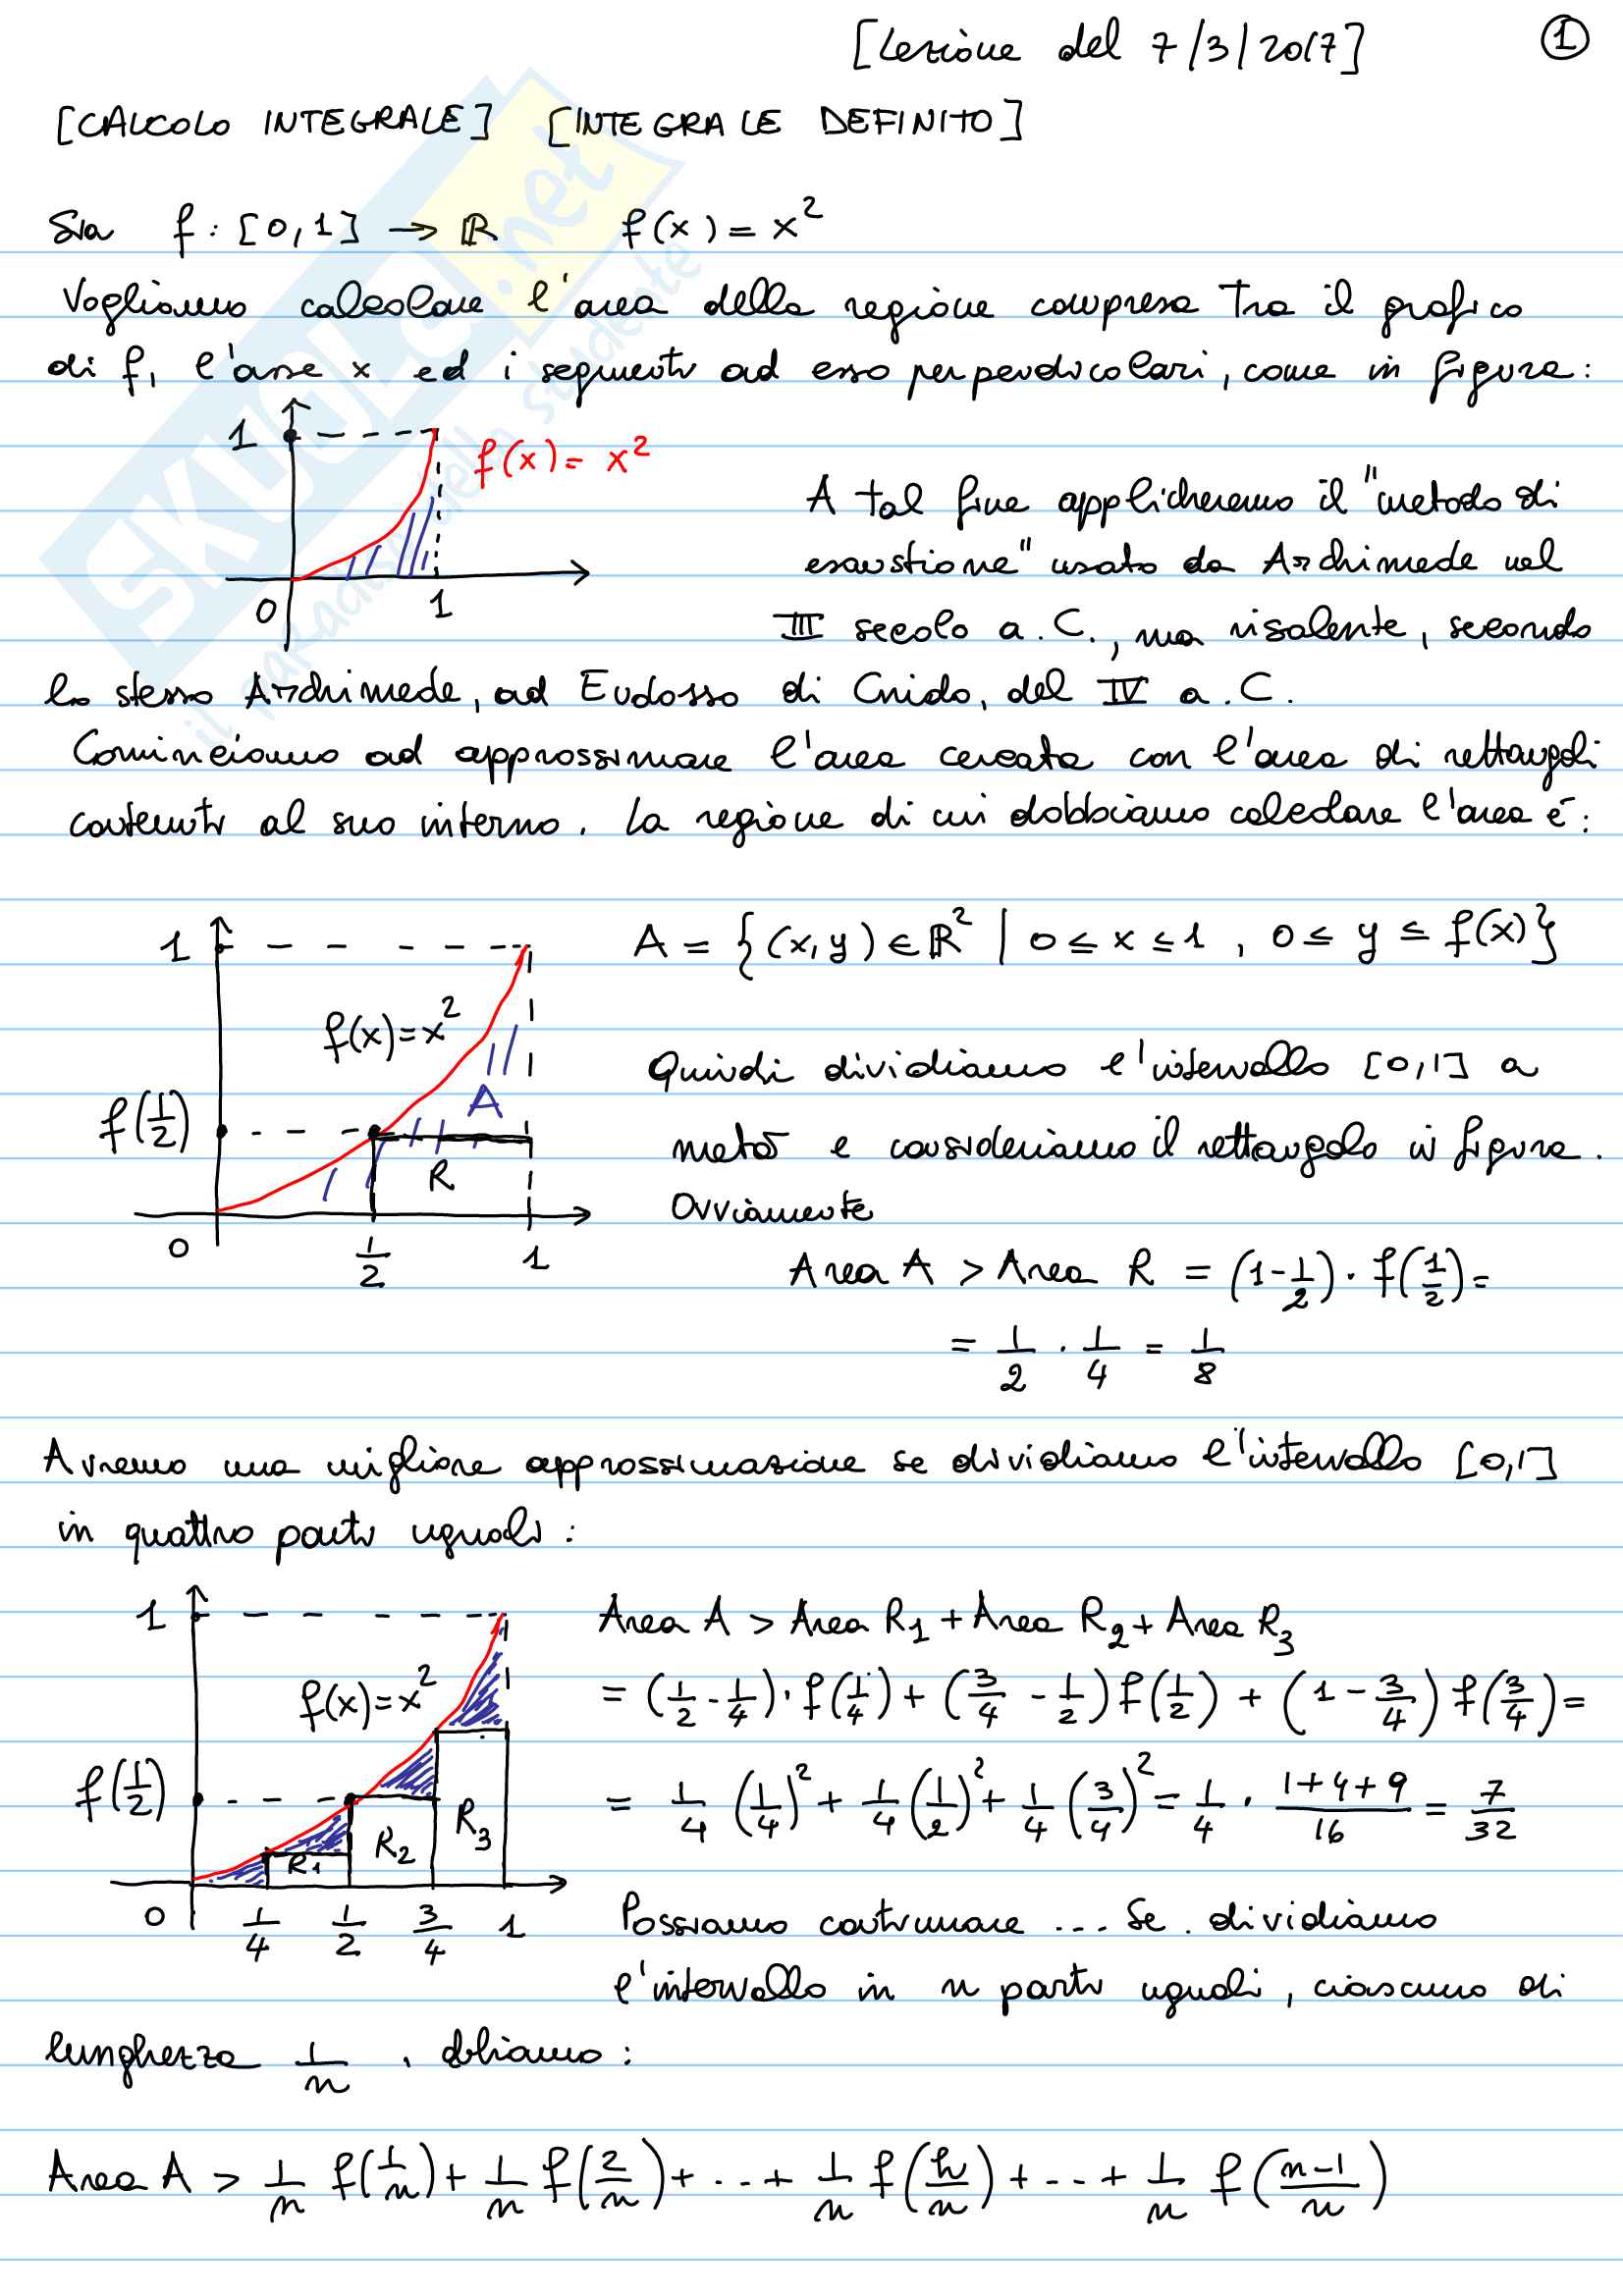 [Lezione del 7/3/2017] 1
[CALCOLO INTEGRALE] [INTEGRALE DEFINITO]
Sia f: [0,1] → ℝ f(x) = x²
Vogliamo calcolare l'area della regione compresa tra il grafico
di f, l'asse x ed i segmenti ad esso perpendicolari, come in figura:
1
f(x) = x²
0 1
A tal fine applicheremo il "metodo di
esaustione" usato da Archimede nel
III secolo a.C., ma risalente, secondo
lo stesso Archimede, ad Eudosso di Cnido, del IV a.C.
Cominciamo ad approssimare l'area cercata con l'area di rettangoli
contenuti al suo interno. La regione di cui dobbiamo calcolare l'area è:
1
f(x) = x²
A
f(1/2)
R
0 1/2 1
A = {(x,y) ∈ ℝ² | 0 ≤ x ≤ 1, 0 ≤ y ≤ f(x)}
Quindi dividiamo l'intervallo [0,1] a
metà e consideriamo il rettangolo in figura.
Ovviamente
Area A > Area R = (1 - 1/2) · f(1/2) =
= 1/2 · 1/4 = 1/8
Avremo una migliore approssimazione se dividiamo l'intervallo [0,1]
in quattro parti uguali:
1
f(x) = x²
f(1/2)
R₁ R₂ R₃
0 1/4 1/2 3/4 1
Area A > Area R₁ + Area R₂ + Area R₃
= (1/2 - 1/4) · f(1/4) + (3/4 - 1/2) f(1/2) + (1 - 3/4) f(3/4) =
= 1/4 (1/4)² + 1/4 (1/2)² + 1/4 (3/4)² = 1/4 · (1+4+9)/16 = 7/32
Possiamo continuare ... Se dividiamo
l'intervallo in n parti uguali, ciascuno di
lunghezza 1/n, abbiamo:
Area A > 1/n f(1/n) + 1/n f(2/n) + ... + 1/n f(h/n) + ... + 1/n f((n-1)/n)
SKUOLA.net
il paradiso dello studente